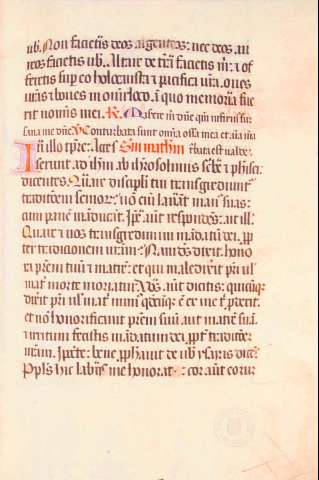 ub. Non facietis deos argenteos: nec deos au
reos facietis ub. Altare de t̄ra facietis m̄: ⁊ of
feretis sup eo holocausta ⁊ pacifica ur̄a. oues
ur̄as ⁊ boues in om̄i loco. in quo memoria fue
rit nominis mei. R. Miserere m̄ dn̄e qm̄ infirm̄ sū:
sana me dn̄e. V. Conturbata sunt om̄ia ossa mea et aīa m̄a
In illo tp̄re: Sm̄ mathm̄ t̄bata est ualde:
serunt ad ih̄m ab ih̄rosolimis scribe ⁊ pharisei
dicentes. Quare discipuli tui transgrediunt̄
traditionem seniorꝝ: nō em̄ lauāt manꝰ suas:
cum panē māducāt. Ip̄e aut̄ respondēs: ait ill.
Quare ⁊ uos transgredim̄i m̄datū dei. pp̄
ter traditionem ur̄am: Nam deꝰ dixit. hono
ra pr̄em tuū ⁊ matr̄e: et qui maledixerit pr̄i uł
mat̄ morte moriat̄. Vos aut̄ dicitis: quicūqꝫ
dixerit pr̄i uł mat̄ munꝰ qdcūqꝫ ē ex me t̄ proderit:
et nō honorificauit pr̄em suū aut matr̄e suā:
⁊ irritum fecistis m̄datum dei ppt̄ traditōe
ur̄am. Ipocrite: bene pp̄hauit de uob ysaias dicēs
Ppl̄s hic labijs me honorat: cor aut̄ eorum